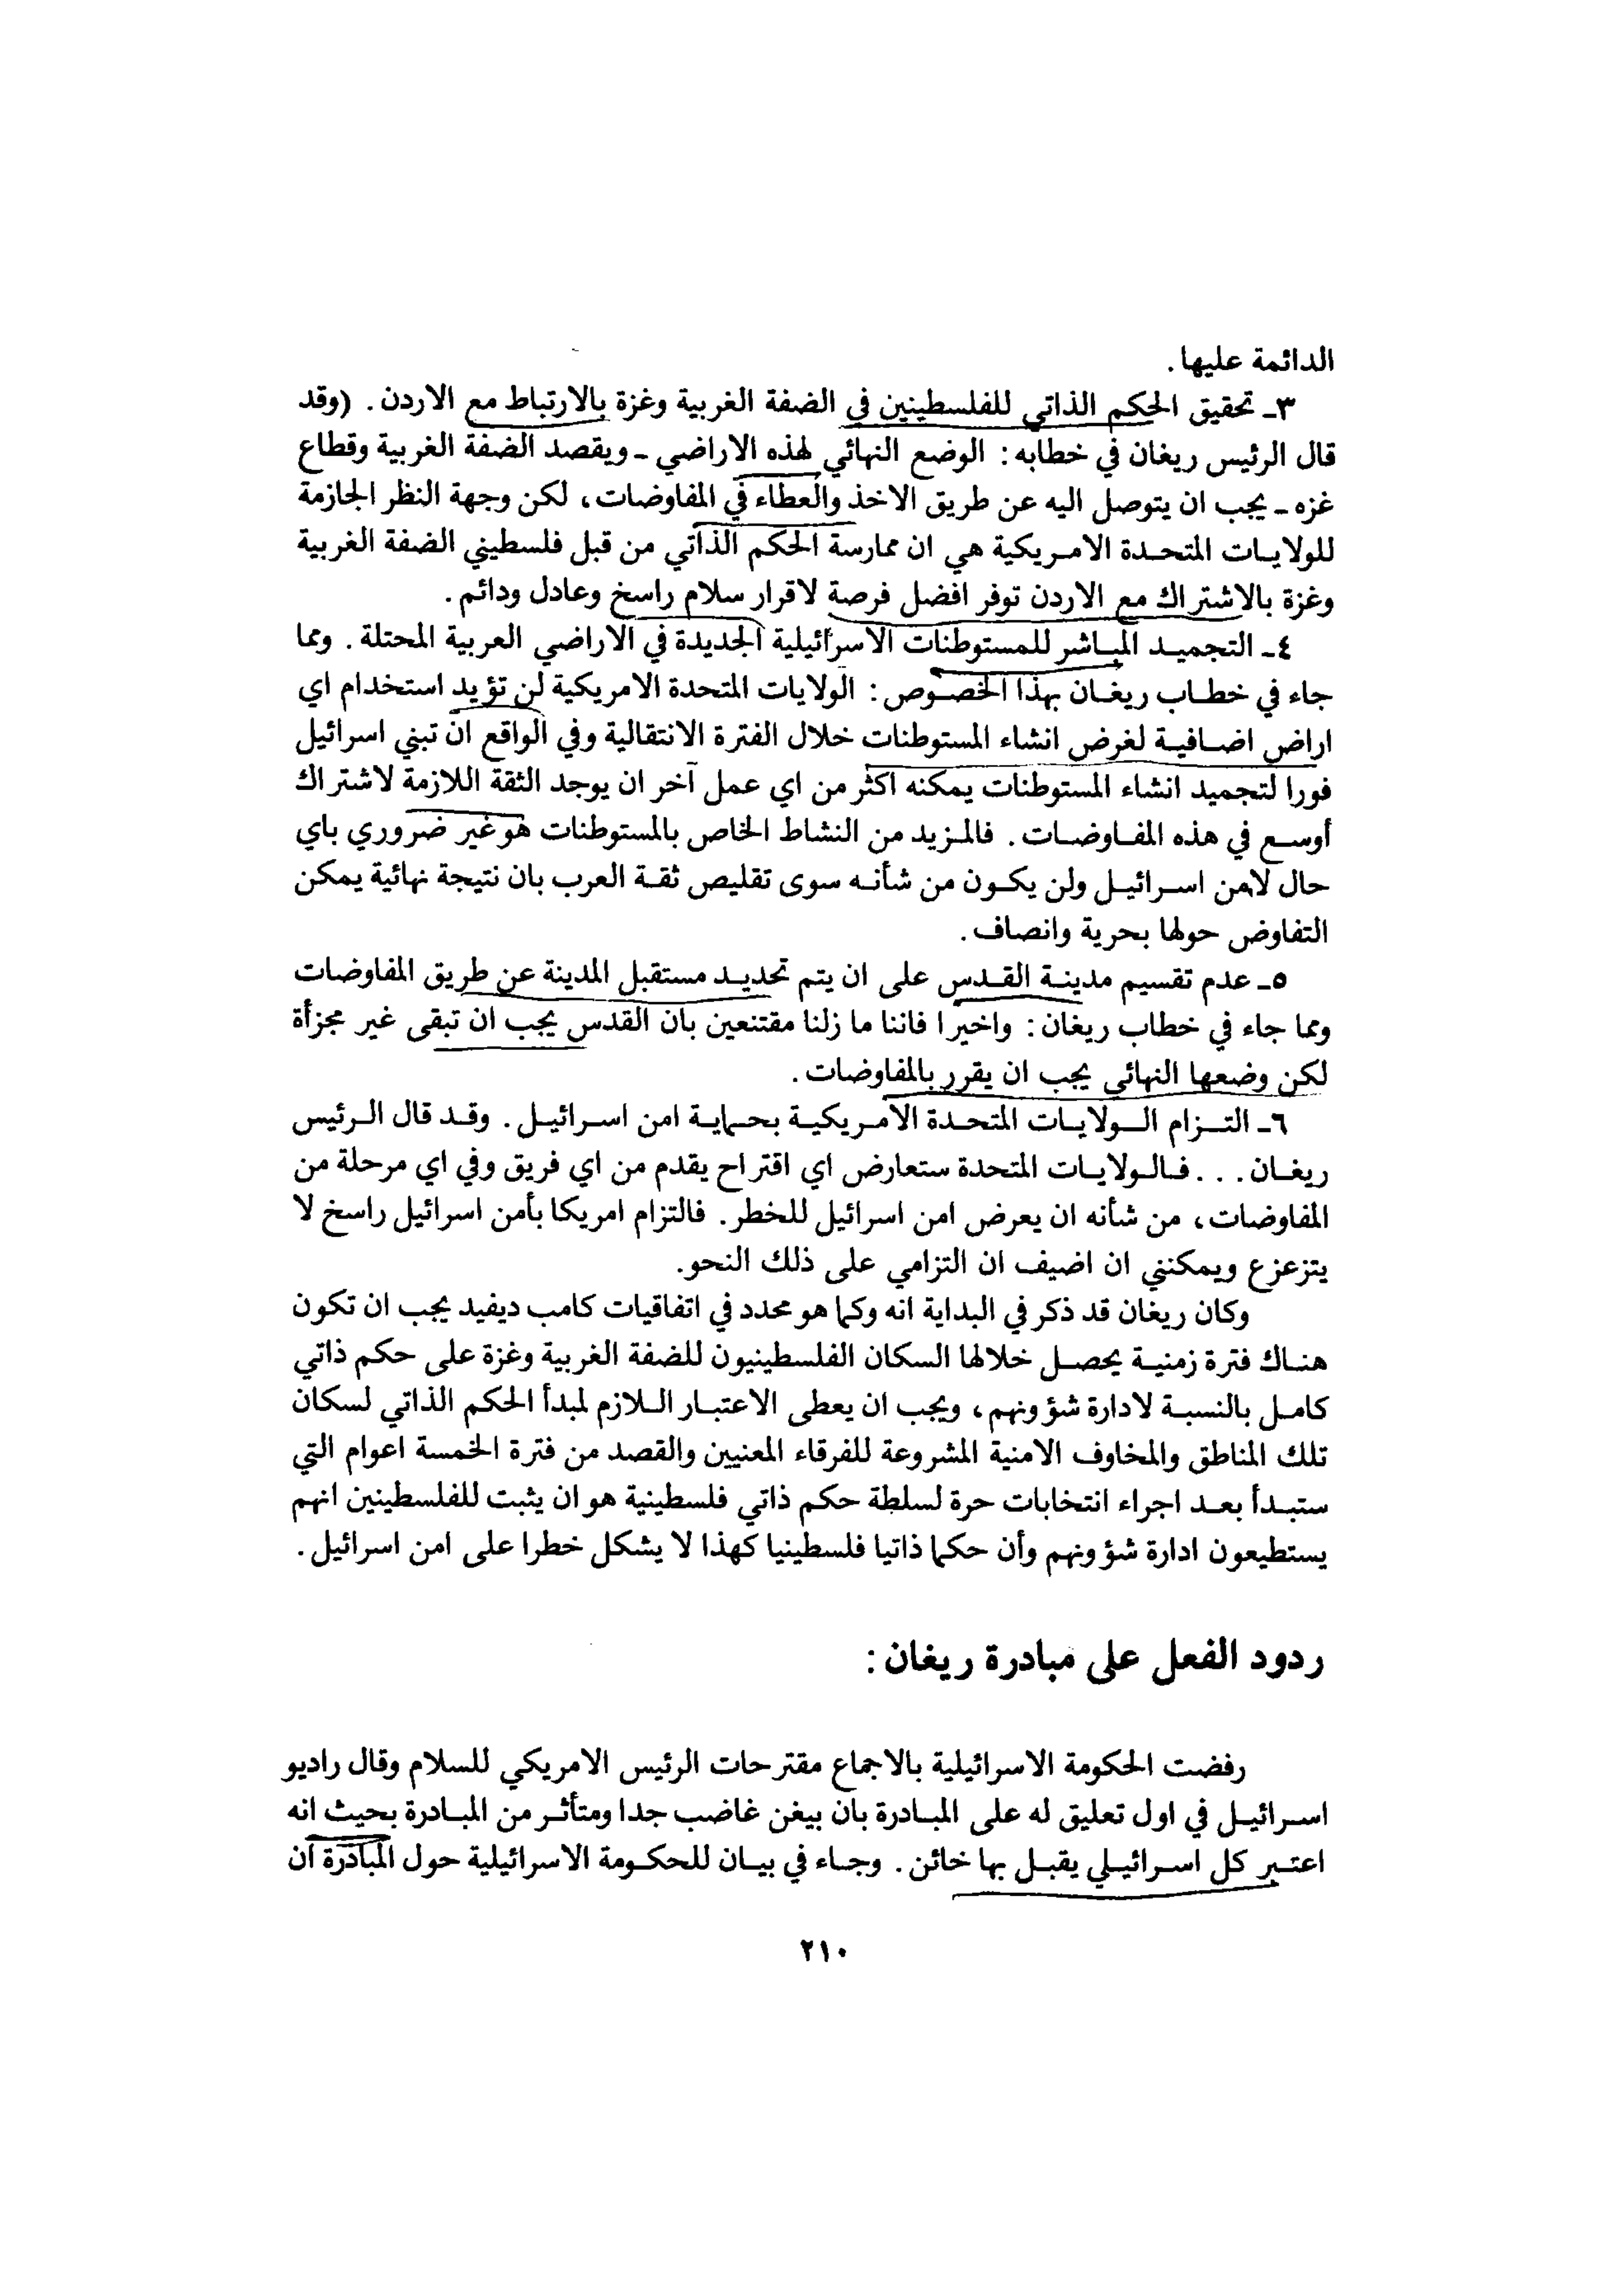 الدائمة عليها.
٣ـ تحقيق الحكم الذاتي للفلسطينين في الضفة الغربية وغزة بالارتباط مع الاردن. (وقد
قال الرئيس ريغان في خطابه: الوضع النهائي لهذه الاراضي ـ ويقصد الضفة الغربية وقطاع
غزه ـ يجب ان يتوصل اليه عن طريق الاخذ والعطاء في المفاوضات، لكن وجهة النظر الجازمة
للولايات المتحدة الامريكية هي ان ممارسة الحكم الذاتي من قبل فلسطيني الضفة الغربية
وغزة بالاشتراك مع الاردن توفر افضل فرصة لاقرار سلام راسخ وعادل ودائم.
٤ـ التجميد المباشر للمستوطنات الاسرائيلية الجديدة في الاراضي العربية المحتلة. ومما
جاء في خطاب ريغان بهذا الخصوص: الولايات المتحدة الامريكية لن تؤيد استخدام اي
اراض اضافية لغرض انشاء المستوطنات خلال الفترة الانتقالية وفي الواقع ان تبني اسرائيل
فورا لتجميد انشاء المستوطنات يمكنه اكثر من اي عمل آخر ان يوجد الثقة اللازمة لاشتراك
أوسع في هذه المفاوضات. فالمزيد من النشاط الخاص بالمستوطنات هو غير ضروري باي
حال لامن اسرائيل ولن يكون من شأنه سوى تقليص ثقة العرب بان نتيجة نهائية يمكن
التفاوض حولها بحرية وانصاف.
٥ـ عدم تقسيم مدينة القدس على ان يتم تحديد مستقبل المدينة عن طريق المفاوضات
ومما جاء في خطاب ريغان: واخيرا فاننا ما زلنا مقتنعين بان القدس يجب ان تبقى غير مجزأة
لكن وضعها النهائي يجب ان يقرر بالمفاوضات.
٦ـ التزام الولايات المتحدة الامريكية بحماية امن اسرائيل. وقد قال الرئيس
ريغان... فالولايات المتحدة ستعارض اي اقتراح يقدم من اي فريق وفي اي مرحلة من
المفاوضات، من شأنه ان يعرض امن اسرائيل للخطر. فالتزام امريكا بأمن اسرائيل راسخ لا
يتزعزع ويمكنني ان اضيف ان التزامي على ذلك النحو.
وكان ريغان قد ذكر في البداية انه وكما هو محدد في اتفاقيات كامب ديفيد يجب ان تكون
هناك فترة زمنية يحصل خلالها السكان الفلسطينيون للضفة الغربية وغزة على حكم ذاتي
كامل بالنسبة لادارة شؤونهم، ويجب ان يعطى الاعتبار اللازم لمبدأ الحكم الذاتي لسكان
تلك المناطق والمخاوف الامنية المشروعة للفرقاء المعنيين والقصد من فترة الخمسة اعوام التي
ستبدأ بعد اجراء انتخابات حرة لسلطة حكم ذاتي فلسطينية هو ان يثبت للفلسطينين انهم
يستطيعون ادارة شؤونهم وأن حكما ذاتيا فلسطينيا كهذا لا يشكل خطرا على امن اسرائيل.
ردود الفعل على مبادرة ريغان:
رفضت الحكومة الاسرائيلية بالاجماع مقترحات الرئيس الامريكي للسلام وقال راديو
اسرائيل في اول تعليق له على المبادرة بان بيغن غاضب جدا ومتأثر من المبادرة بحيث انه
اعتبر كل اسرائيلي يقبل بها خائن. وجاء في بيان للحكومة الاسرائيلية حول المبادرة ان
٢١٠